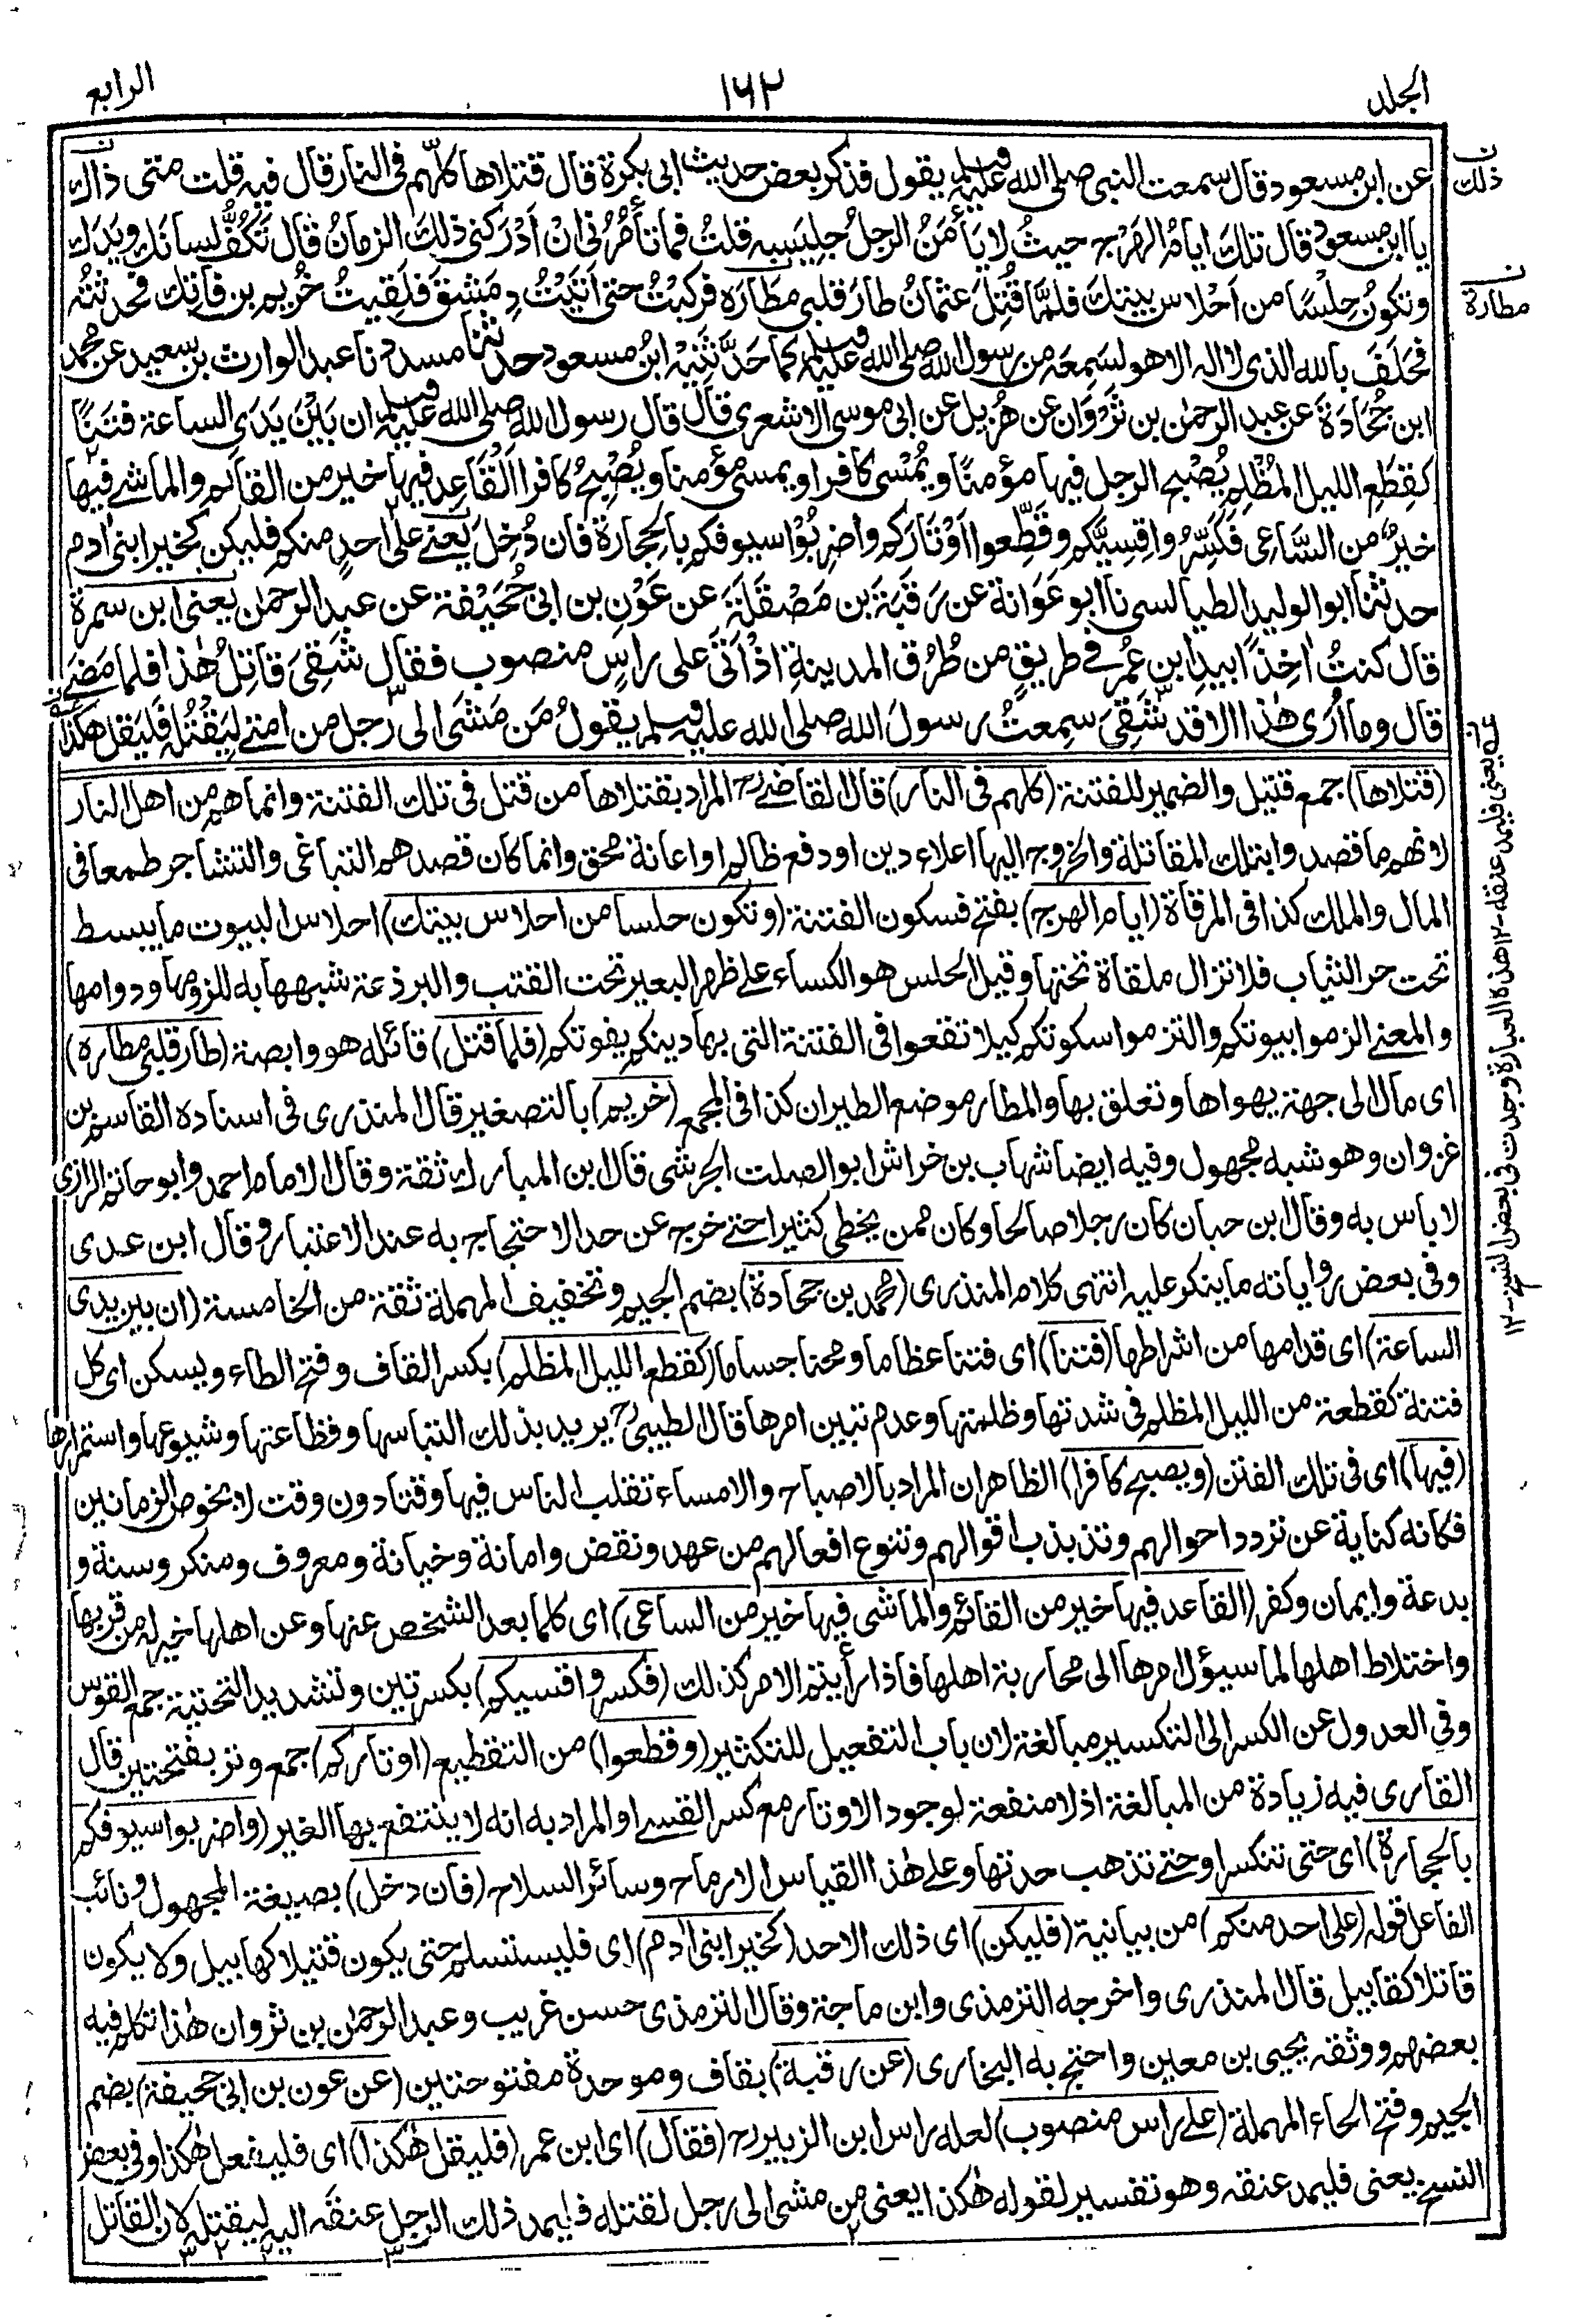 الجلد ١٦٢ الرابع
عن ابن مسعود قال سمعت النبي صلى الله عليه وسلم يقول فذكر بعض حديث ابى بكرة قال قتلاها كلهم فى النار قال فيه قلت متى ذاك
ذلك
يا ابن مسعود قال تلك ايام الهَرْج حيثُ لا يَأْمَنُ الرجلُ جليسه قلتُ فما تأمُرُنى ان اَدْرَكَنى ذلك الزمانُ قال تَكُفُّ لسانَك ويَدَك
وتكونُ حِلْسًا من اَحْلاس بيتك فلمَّا قُتِلَ عثمانُ طار قلبى مطَارَه فركبتُ حتى اَتَيْتُ دِمَشقَ فلَقِيتُ خُرَيم بن فاتك فحدثتُه
مطارة
فحَلَفَ بالله الذى لا اله الا هو لسَمِعَه من رسول الله صلى الله عليه وسلم كما حَدَّثَنِيْه ابنُ مسعود حدثنا مسدد نا عبد الوارث بن سعيد عن محمد
ابن جُحَادَة عن عبد الرحمٰن بن ثَرْوَان عن هُزَيل عن ابى موسى الاشعرى قال قال رسول الله صلى الله عليه وسلم ان بَيْنَ يَدَىِ الساعة فتنًا
كقِطَعِ الليل المُظْلِم يُصْبِح الرجل فيها مؤمنًا ويُمْسى كافرا ويمسى مؤمنا ويُصْبِحُ كافرا اَلْقَاعِد فيها خير من القائم والماشے فيها
خيرٌ من السَّاعِى فَكَسِّرُوا قِسِيَّكم وقَطِّعوا اَوْتَارَكم واضرِبُوْا سيوفكم بالحجارة فان دُخِلَ يعنے على احدٍ منكم فليكن كخير ابنى اٰدم
حدثنا ابو الوليد الطيالسى نا ابو عَوَانة عن رَقَبَة بن مَصْقَلَة عن عَوْنِ بن ابى جُحَيْفة عن عبد الرحمٰن يعنى ابن سمرة
قال كنتُ اٰخِذًا بيد ابن عُمر فے طريقٍ من طُرُق المدينةِ اذْ اَتَى على راسٍ منصوب فقال شَقِىَ قاتِلُ هٰذا فلما مَضَے
قال وما اُرَى هٰذا الا قد شَقِىَ سمِعتُ رسولَ الله صلى الله عليه وسلم يقولُ مَن مَشَى الى رَجل من امتے لِيَقْتُلَه فَليَقل هٰكذا
(قتلاها) جمع قتيل والضمير للفتنة (كلهم فى النار) قال القاضے رح المراد بقتلاها من قتل فى تلك الفتنة وانما هم من اهل النار
لانهم ما قصدوا بتلك المقاتلة والخروج اليها اعلاء دين او دفع ظالم او اعانة محق وانما كان قصدهم التباغى والتشاجر طمعا فى
المال والملك كذا فى المرقاة (ايام الهرج) بفتح فسكون الفتنة (وتكون حلسا من احلاس بيتك) احلاس البيوت ما يبسط
تحت حر الثياب فلا تزال ملقاة تحتها وقيل الحلس هو الكساء على ظهر البعير تحت القتب والبرذعة شبهها به للزومها ودوامها
والمعنے الزموا بيوتكم والتزموا سكوتكم كيلا تقعوا فى الفتنة التى بها دينكم يفوتكم (فلما قتل) قائله هو وابصة (طار قلبى مطاره)
اى مال الى جهة يهواها وتعلق بها والمطار موضع الطيران كذا فى المجمع (خريم) بالتصغير قال المنذرى فى اسناده القاسم بن
غزوان وهو شبه مجهول وفيه ايضا شهاب بن خراش ابو الصلت الجرشى قال ابن المبارك ثقة وقال الامام احمد وابو حاتم الرازى
لا باس به وقال ابن حبان كان رجلا صالحا وكان ممن يخطى كثيرا حتے خرج عن حد الاحتجاج به عند الاعتبار وقال ابن عدى
وفى بعض رواياته ما ينكر عليه انتهى كلام المنذرى (محمد بن جحادة) بضم الجيم وتخفيف المهملة ثقة من الخامسة (ان بين يدى
الساعة) اى قدامها من اشراطها (فتنا) اى فتنا عظاما ومحنا جساما (كقطع الليل المظلم) بكسر القاف وفتح الطاء ويسكن اى كل
فتنة كقطعة من الليل المظلم فى شدتها وظلمتها وعدم تبين امرها قال الطيبى رح يريد بذلك التباسها وفظاعتها وشيوعها واستمرارها
(فيها) اى فى تلك الفتن (ويصبح كافرا) الظاهر ان المراد بالاصباح والامساء تقلب الناس فيها وقتا دون وقت لا بخصوص الزمانين
فكانه كناية عن تردد احوالهم وتذبذب اقوالهم وتنوع افعالهم من عهد ونقض وامانة وخيانة ومعروف ومنكر وسنة و
بدعة وايمان وكفر (القاعد فيها خير من القائم والماشى فيها خير من الساعى) اى كلما بعد الشخص عنها وعن اهلها خير له من قربها
واختلاط اهلها لما سيؤل امرها الى محاربة اهلها فاذا رأيتم الامر كذلك (فكسروا قسيكم) بكسرتين وتشديد التحتية جمع القوس
وفى العدول عن الكسر الى التكسير مبالغة لان باب التفعيل للتكثير (وقطعوا) من التقطيع (اوتاركم) جمع وتر بفتحتين قال
القارى فيه زيادة من المبالغة اذ لا منفعة لوجود الاوتار مع كسر القسے او المراد به انه لا ينتفع بها الغير (واضربوا سيوفكم
بالحجارة) اى حتى تنكسر او حتے تذهب حدتها وعلے هٰذا القياس الارماح وسائر السلاح (فان دخل) بصيغة المجهول ونائب
الفاعل قوله (على احد منكم) من بيانية (فليكن) اى ذلك الاحد (كخير ابنى اٰدم) اى فليستسلم حتى يكون قتيلا كهابيل ولا يكون
قاتلا كقابيل قال المنذرى واخرجه الترمذى وابن ماجة وقال الترمذى حسن غريب وعبد الرحمٰن بن ثروان هٰذا تكلم فيه
بعضهم ووثقه يحيى بن معين واحتج به البخارى (عن رقبة) بقاف وموحدة مفتوحتين (عن عون بن ابى جحيفة) بضم
الجيم وفتح الحاء المهملة (علے راس منصوب) لعله راس ابن الزبير رح (فقال) اى ابن عمر (فليقل هٰكذا) اى فليفعل هٰكذا وفى بعض
النسخ يعنى فليمد عنقه وهو تفسير لقوله هٰكذا يعنى من مشى الى رجل لقتله فليمد ذلك الرجل عنقه اليه ليقتله لان القاتل
يعنى فليمد عنقه - ١٢ هذه العبارة وجدت فى بعض النسخ - ١٢